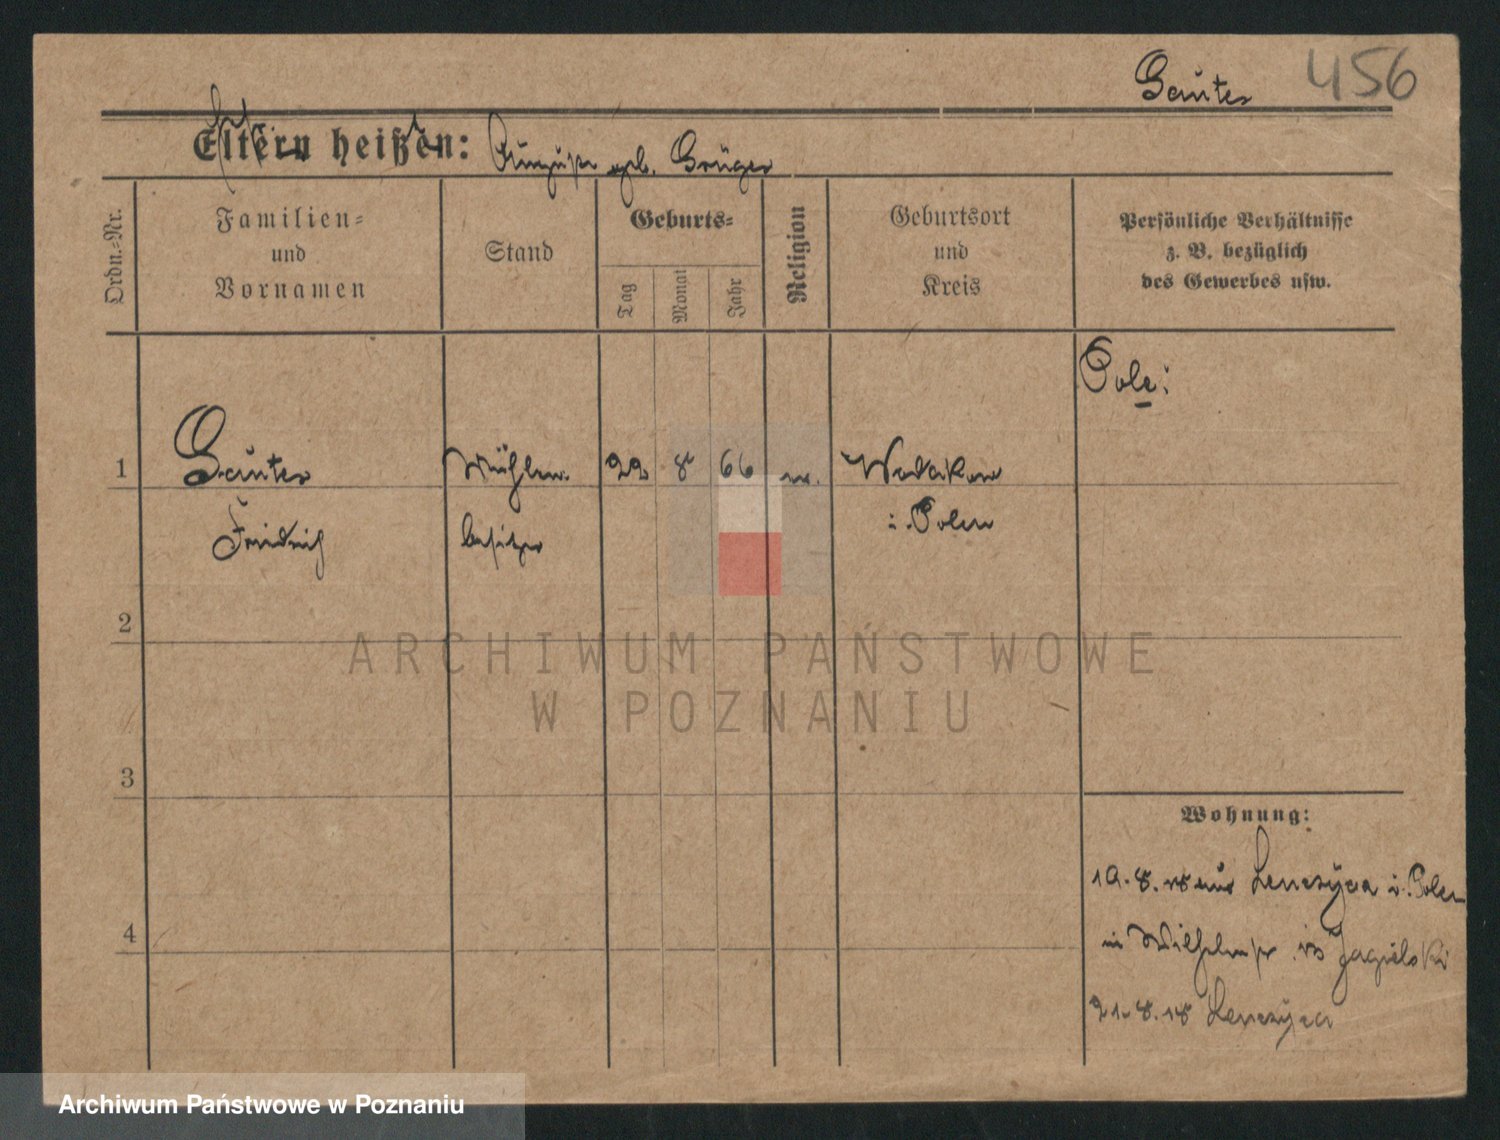 Sauter 456
Eltern heißen: geb. Krüger
Ordn.-Nr.
Familien-
und
Vornamen
Stand
Geburts-
Tag
Monat
Jahr
Religion
Geburtsort
und
Kreis
Persönliche Verhältnisse
z. B. bezüglich
des Gewerbes usw.
Pole:
1 Sauter Mühlen- 22 8 66
Friedrich besitzer i. Polen
2
3
4
Wohnung:
19.8.18 aus Lenczyca i. Polen
in Wilhelmstr. 13 Jagielski
21.8.18 Lenczyca
ARCHIWUM PAŃSTWOWE
W POZNANIU
Archiwum Państwowe w Poznaniu